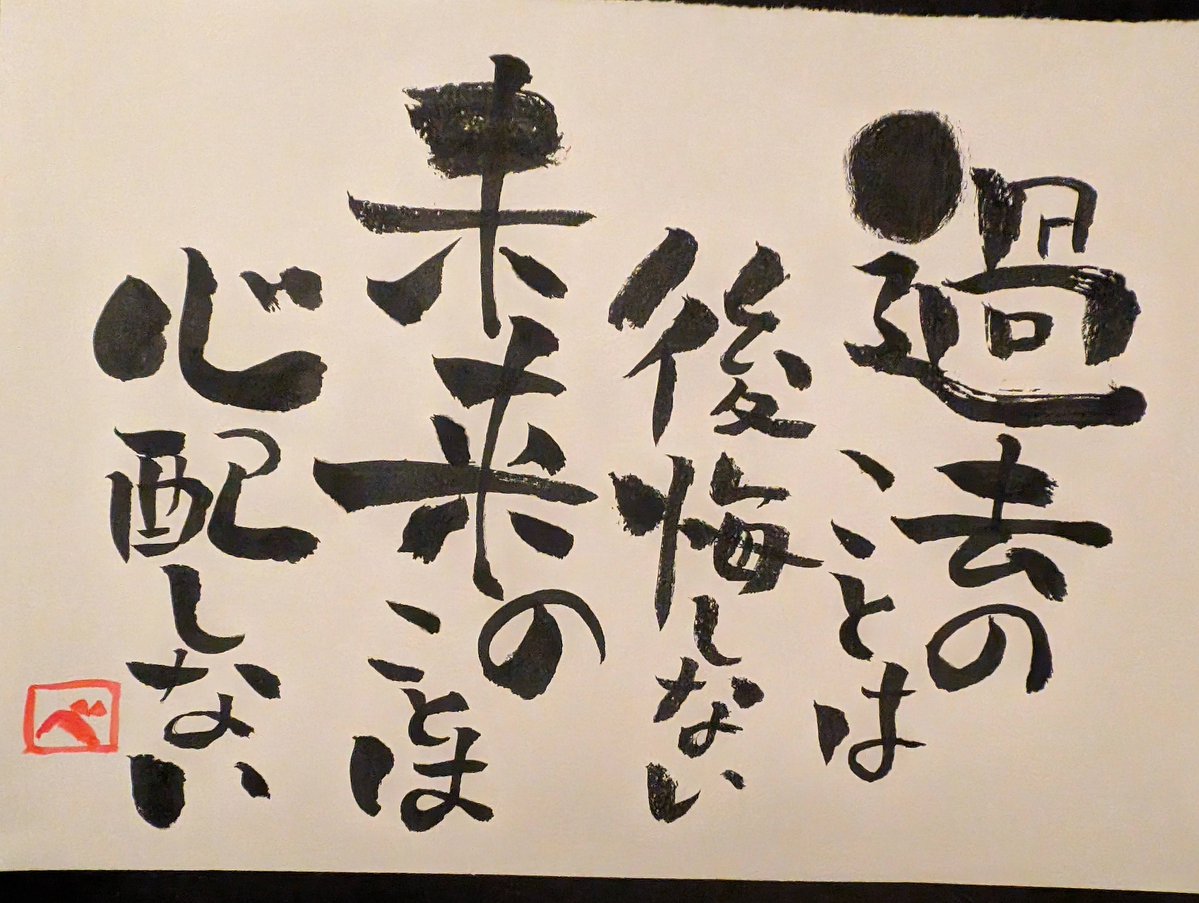 過去の
ことは
後悔しない
未来の
ことは
心配しない
べ